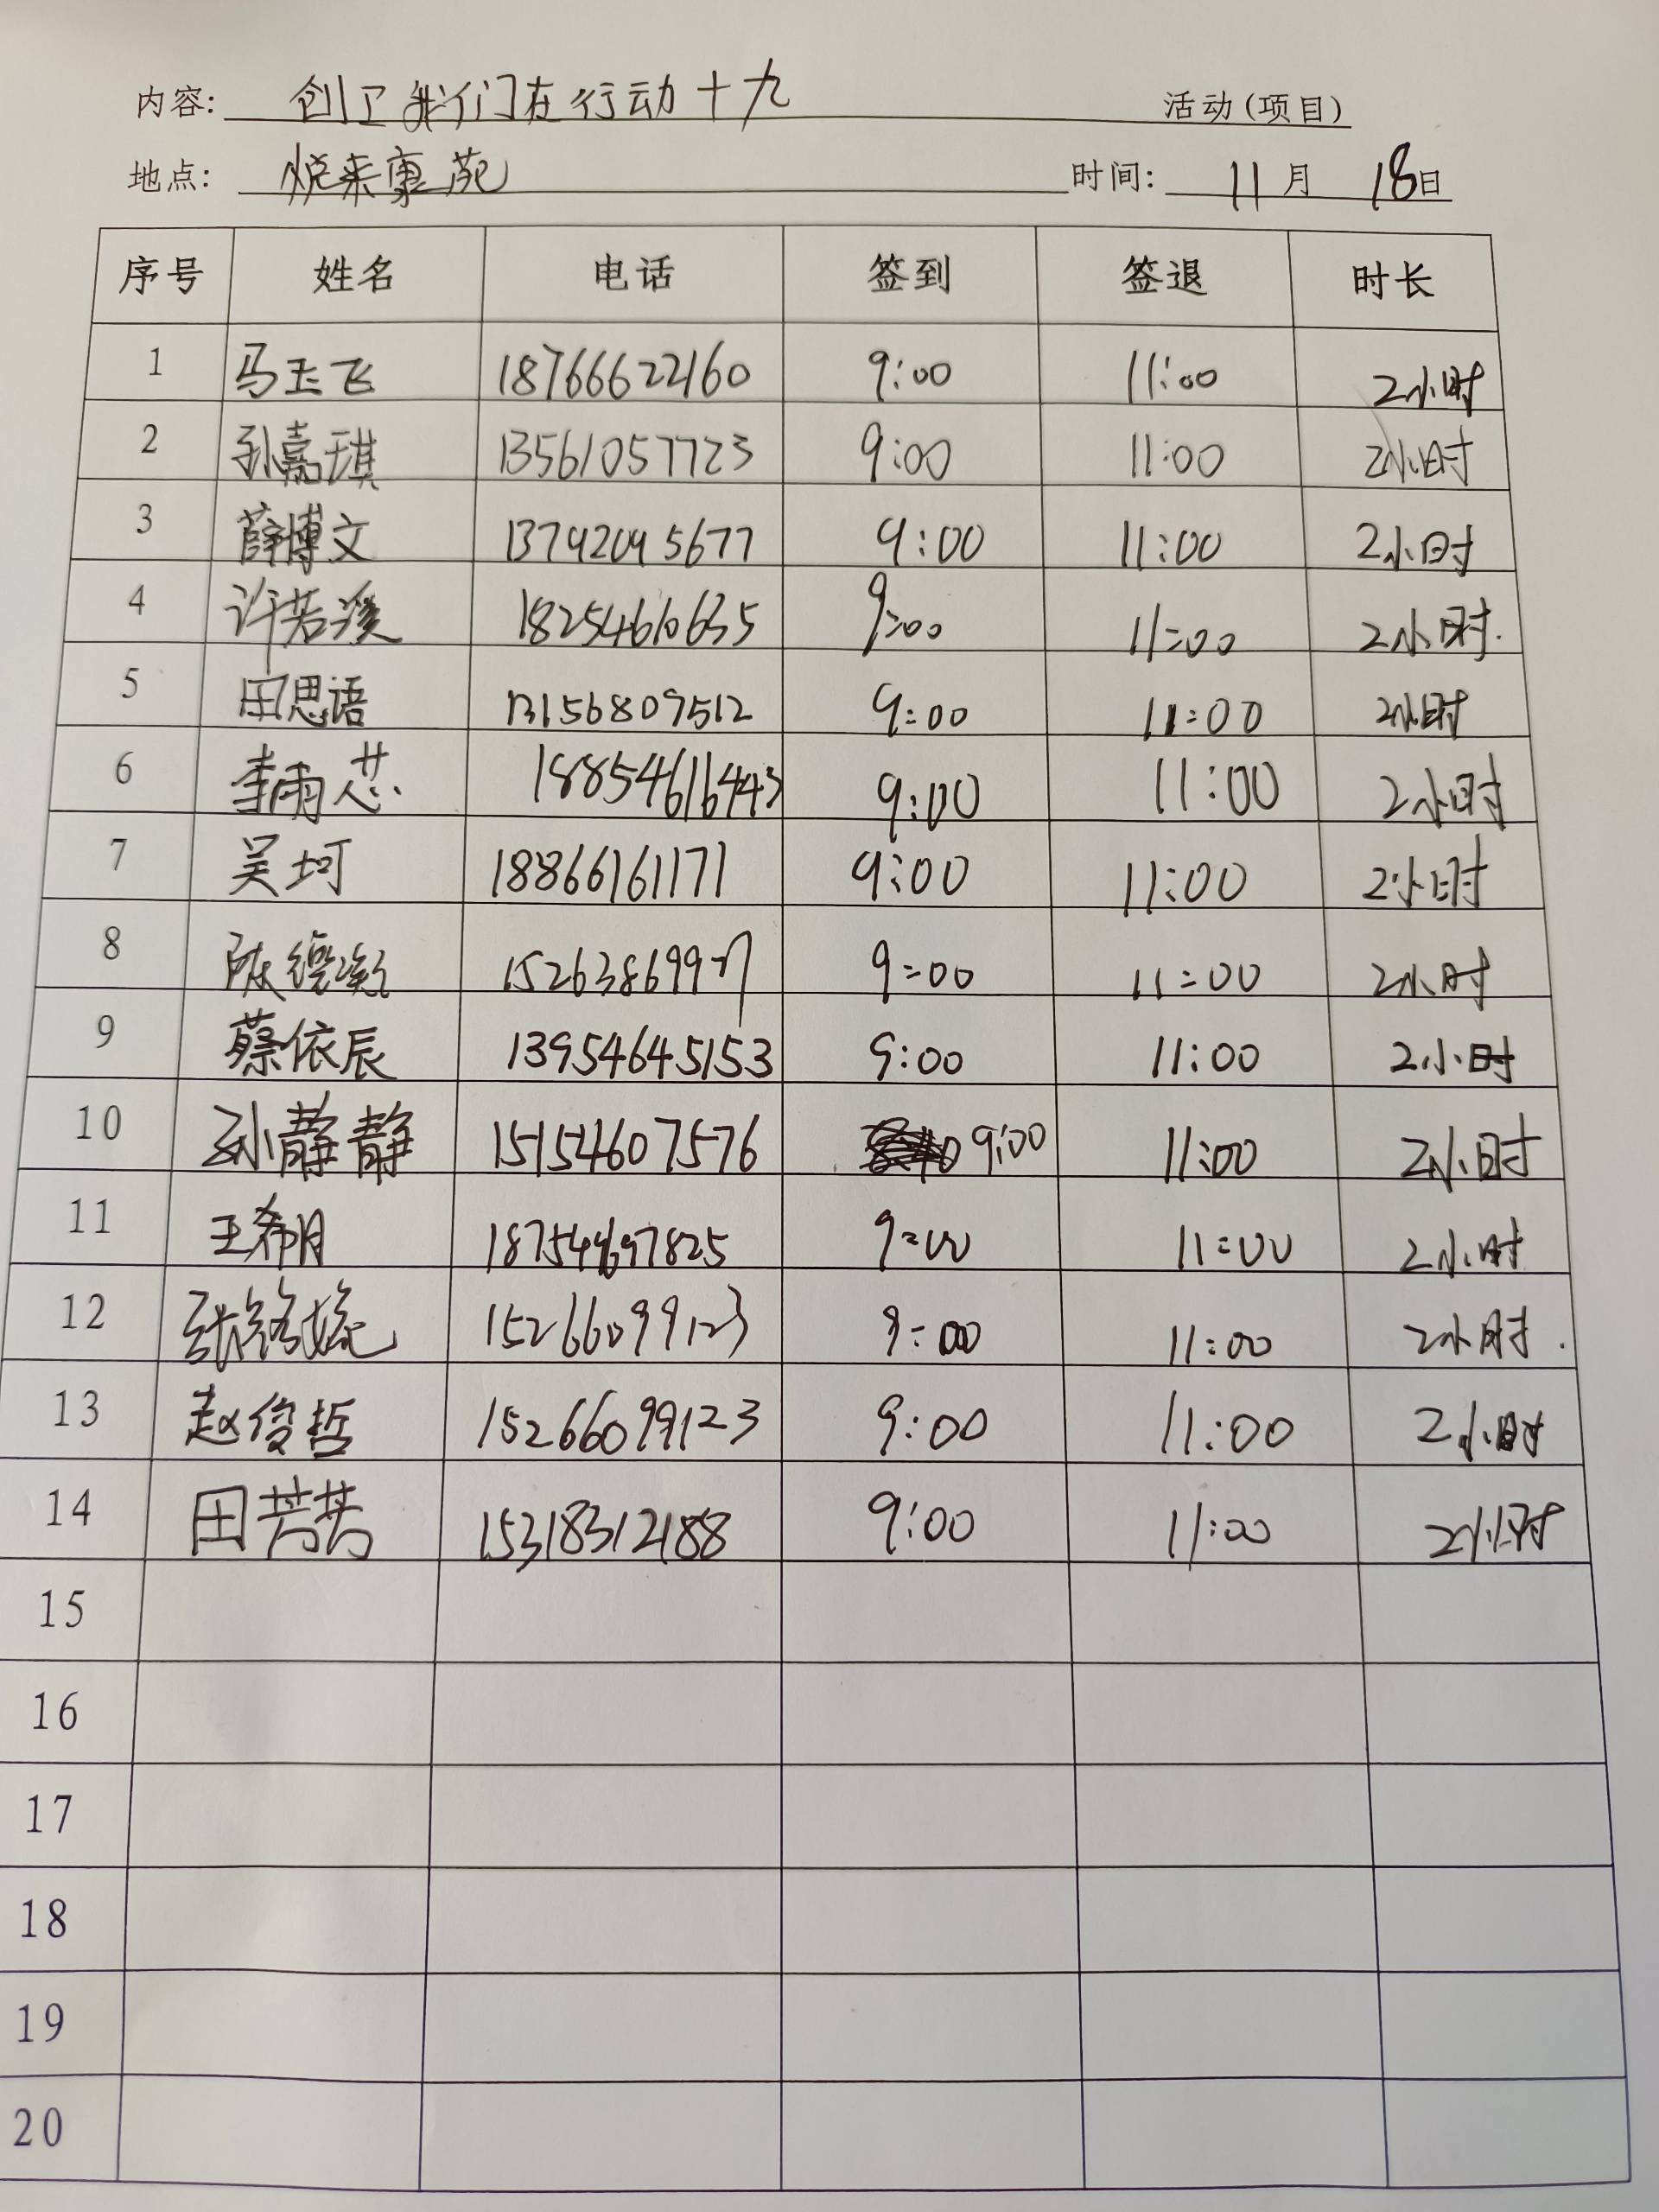 内容: 创卫我们在行动十九 活动(项目)
地点: 悦来康苑 时间: 11月 18日
序号 姓名 电话 签到 签退 时长
1 马玉飞 18766622160 9:00 11:00 2小时
2 孙嘉琪 13561057723 9:00 11:00 2小时
3 薛博文 13792045677 9:00 11:00 2小时
4 许若溪 18254661635 9:00 11:00 2小时.
5 田思语 13156809512 9:00 11:00 2小时
6 李雨芯 18854616443 9:00 11:00 2小时
7 吴坷 18866161171 9:00 11:00 2小时
8 陈 9:00 11:00 2小时
9 蔡依辰 13954645153 9:00 11:00 2小时
10 孙静静 15154607576 9:00 11:00 2小时
11 王希月 9:00 11:00 2小时
12 张铭婉 15266099123 9:00 11:00 2小时.
13 赵俊哲 15266099123 9:00 11:00 2小时
14 田芳芳 15318312188 9:00 11:00 2小时
15
16
17
18
19
20